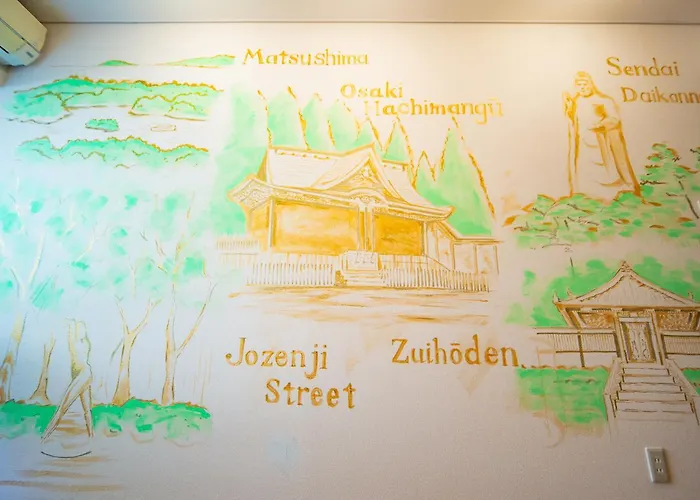 Matsushima
Osaki
Hachimangu
Sendai
Jozenji
Street
Zuihōden